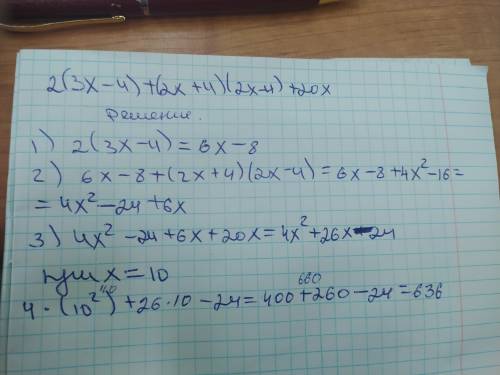 2(3x-4)+(2x+4)(2x-4)+20x
Решение.
1) 2(3x-4)=6x-8
2) 6x-8+(2x+4)(2x-4)=6x-8+4x²-16=
=4x²-24+6x
3) 4x²-24+6x+20x=4x²+26x-24
при x=10
660
4·(10²)+26·10-24=400+260-24=636